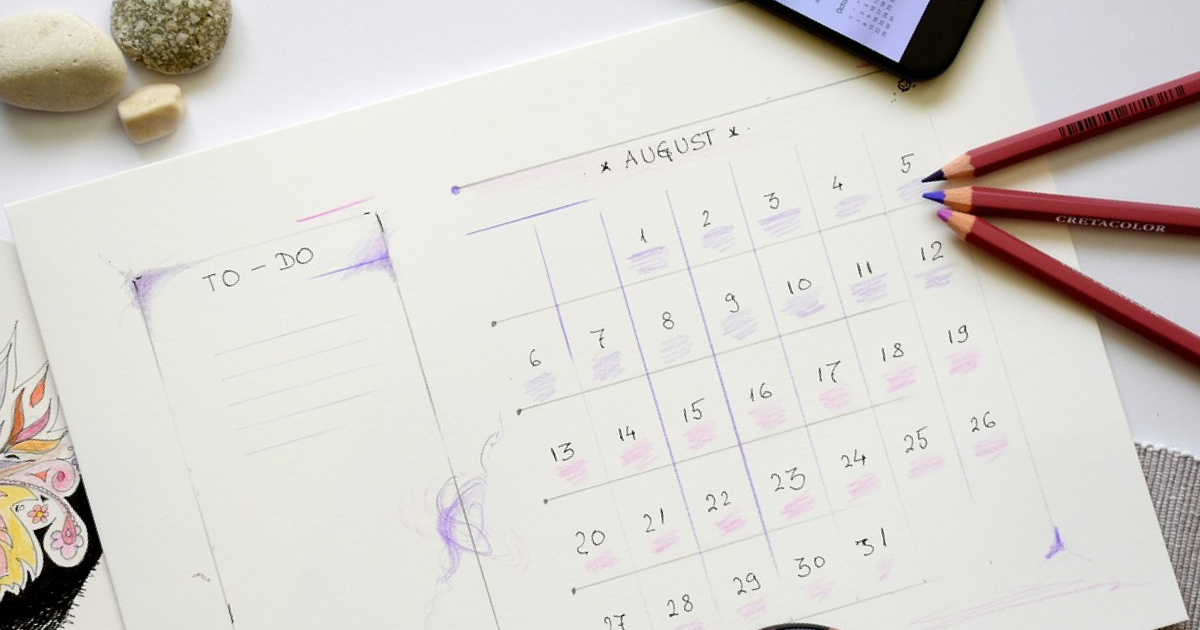 AUGUST
TO-DO
1 2 3 4 5
6 7 8 9 10 11 12
13 14 15 16 17 18 19
20 21 22 23 24 25 26
27 28 29 30 31
CRETACOLOR